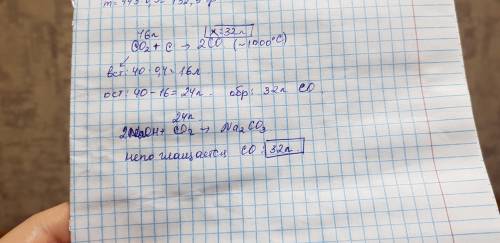 16л x=32л
CO₂ + C → 2CO (~1000°C)
вст: 40·0,4 = 16л
ост: 40-16=24л. обр: 32л CO.
24л
2NaOH + CO₂ → Na₂CO₃
непоглащается CO: 32л